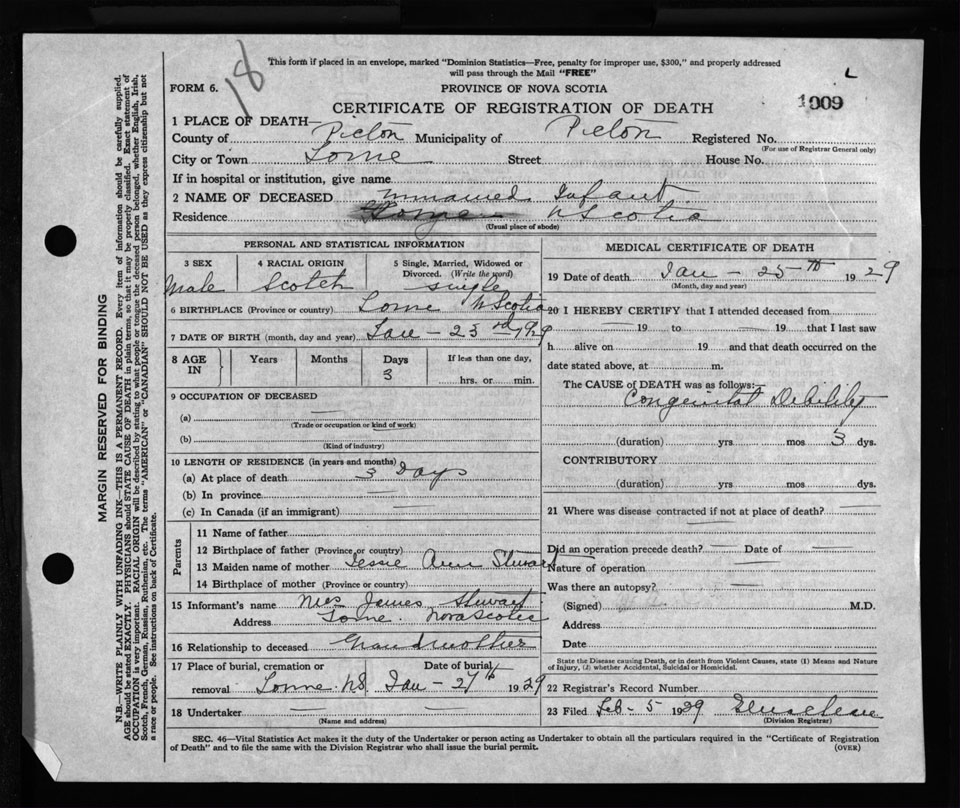 18
This form if placed in an envelope, marked "Dominion Statistics—Free, penalty for improper use, $300," and properly addressed
will pass through the Mail "FREE"
L
FORM 6.
PROVINCE OF NOVA SCOTIA
1009
CERTIFICATE OF REGISTRATION OF DEATH
1 PLACE OF DEATH—
County of Pictou Municipality of Pictou Registered No.
(For use of Registrar General only)
City or Town Lorne Street House No.
If in hospital or institution, give name
2 NAME OF DECEASED unnamed Infant
Residence N Scotia
(Usual place of abode)
PERSONAL AND STATISTICAL INFORMATION
3 SEX 4 RACIAL ORIGIN 5 Single, Married, Widowed or
Divorced. (Write the word)
Male Scotch single
6 BIRTHPLACE (Province or country) Lorne N Scotia
7 DATE OF BIRTH (month, day and year) Jan - 23rd 1929
8 AGE IN Years Months Days If less than one day,
3 hrs. or min.
9 OCCUPATION OF DECEASED
(a) —
(Trade or occupation or kind of work)
(b) —
(Kind of industry)
10 LENGTH OF RESIDENCE (in years and months)
(a) At place of death 3 Days
(b) In province —
(c) In Canada (if an immigrant) —
Parents
11 Name of father
12 Birthplace of father (Province or country)
13 Maiden name of mother Jessie Ann Stewart
14 Birthplace of mother (Province or country)
15 Informant's name Mrs James Stewart
Address Lorne. Nova Scotia
16 Relationship to deceased Grandmother
17 Place of burial, cremation or Date of burial
removal Lorne N.S. Jan - 27th 1929
18 Undertaker — —
(Name and address)
MEDICAL CERTIFICATE OF DEATH
19 Date of death Jan - 25th 1929
(Month, day and year)
20 I HEREBY CERTIFY that I attended deceased from
— 19 to — 19 that I last saw
h alive on 19 and that death occurred on the
date stated above, at m.
The CAUSE OF DEATH was as follows:—
Congenital Debility
(duration) yrs mos 3 dys.
CONTRIBUTORY
(duration) yrs mos dys.
21 Where was disease contracted if not at place of death? —
Did an operation precede death? — Date of —
Nature of operation —
Was there an autopsy? —
(Signed) M.D.
Address
Date
State the Disease causing Death, or in Death from Violent Causes, state (1) Means and Nature
of Injury, (2) whether Accidental, Suicidal or Homicidal.
22 Registrar's Record Number
23 Filed Feb - 5 1929
(Division Registrar)
SEC. 46—Vital Statistics Act makes it the duty of the Undertaker or person acting as Undertaker to obtain all the particulars required in the "Certificate of Registration
of Death" and to file the same with the Division Registrar who shall issue the burial permit.
(OVER)
MARGIN RESERVED FOR BINDING
N.B.—WRITE PLAINLY WITH UNFADING INK—THIS IS A PERMANENT RECORD. Every item of information should be carefully supplied.
AGE should be stated EXACTLY. PHYSICIANS should STATE CAUSE OF DEATH in plain terms, so that it may be properly classified. Exact statement of
OCCUPATION is very important. RACIAL ORIGIN will be described by stating to what people or tongue the deceased person belonged, whether English, Irish,
Scotch, French, German, Russian, Ruthenian, etc. The terms "AMERICAN" or "CANADIAN" SHOULD NOT BE USED as they express citizenship but not
a race or people. See instructions on back of Certificate.